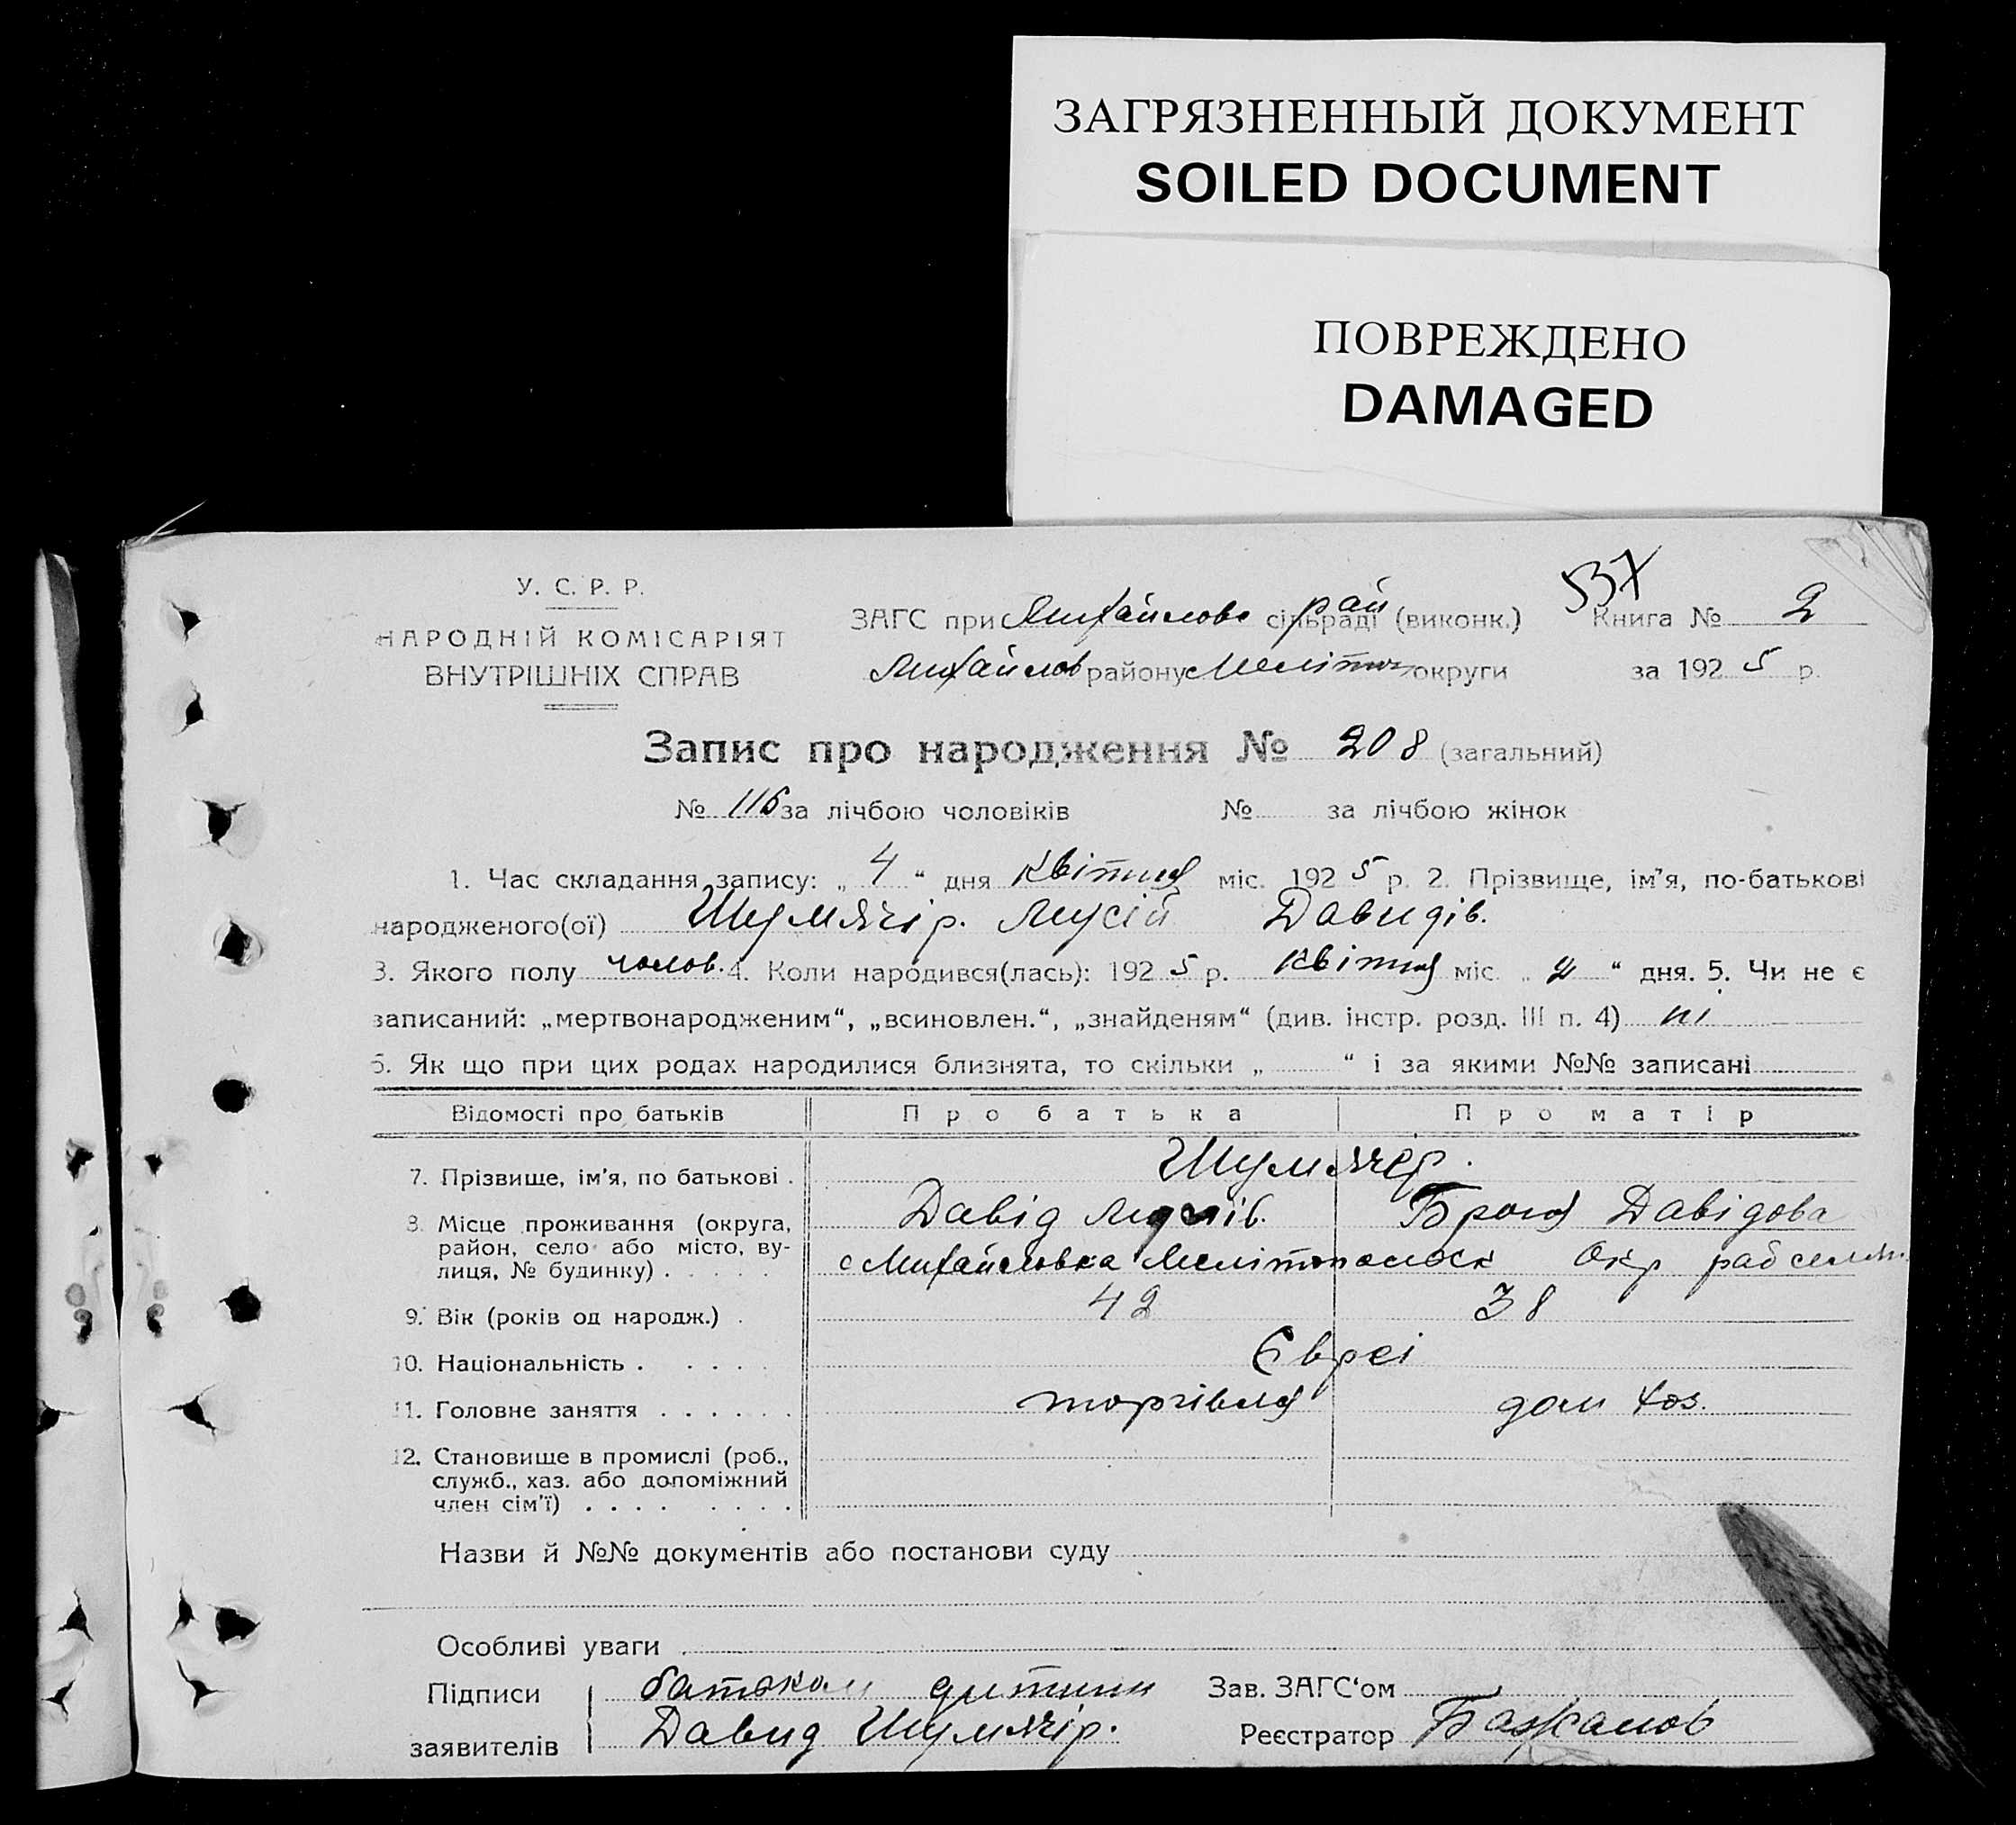 ЗАГРЯЗНЕННЫЙ ДОКУМЕНТ
SOILED DOCUMENT
ПОВРЕЖДЕНО
DAMAGED
537
У. С. Р. Р.
НАРОДНІЙ КОМІСАРІЯТ
ВНУТРІШНІХ СПРАВ
ЗАГС при Михайлово сільраді рай (виконк.) Книга № 2
Михайлов району Меліпт округи за 1925 р.
Запис про народження № 208 (загальний)
№ 116 за лічбою чоловіків № за лічбою жінок
1. Час складання запису: „4“ дня квітня міс. 1925 р. 2. Прізвище, ім'я, по-батькові
народженого(ої) Шумячір. Мусій Давидів.
3. Якого полу чолов. 4. Коли народився(лась): 1925 р. квітня міс. „2“ дня. 5. Чи не є
записаний: „мертвонародженим“, „всиновлен.“, „знайденям“ (див. інстр. розд. III п. 4) ні
6. Як що при цих родах народилися близнята, то скільки „ “ і за якими №№ записані
Відомості про батьків Про батька Про матір
7. Прізвище, ім'я, по батькові . Шумячер.
Давід Мусіів. Броня Давідова
8. Місце проживання (округа,
район, село або місто, ву-
лиця, № будинку) . . . . . с Михайловка Мелітополоск Окр
9. Вік (років од народж.) . 42 38
10. Національність . . . . . Євреі
11. Головне заняття . . . . . . торгівля дом хоз.
12. Становище в промислі (роб.,
служб., хаз. або допоміжний
член сім'ї) . . . . . . . .
Назви й №№ документів або постанови суду
Особливі уваги
Підписи батоком дитини Зав. ЗАГС'ом
заявителів Давид Шумячір. Реєстратор Бажанов